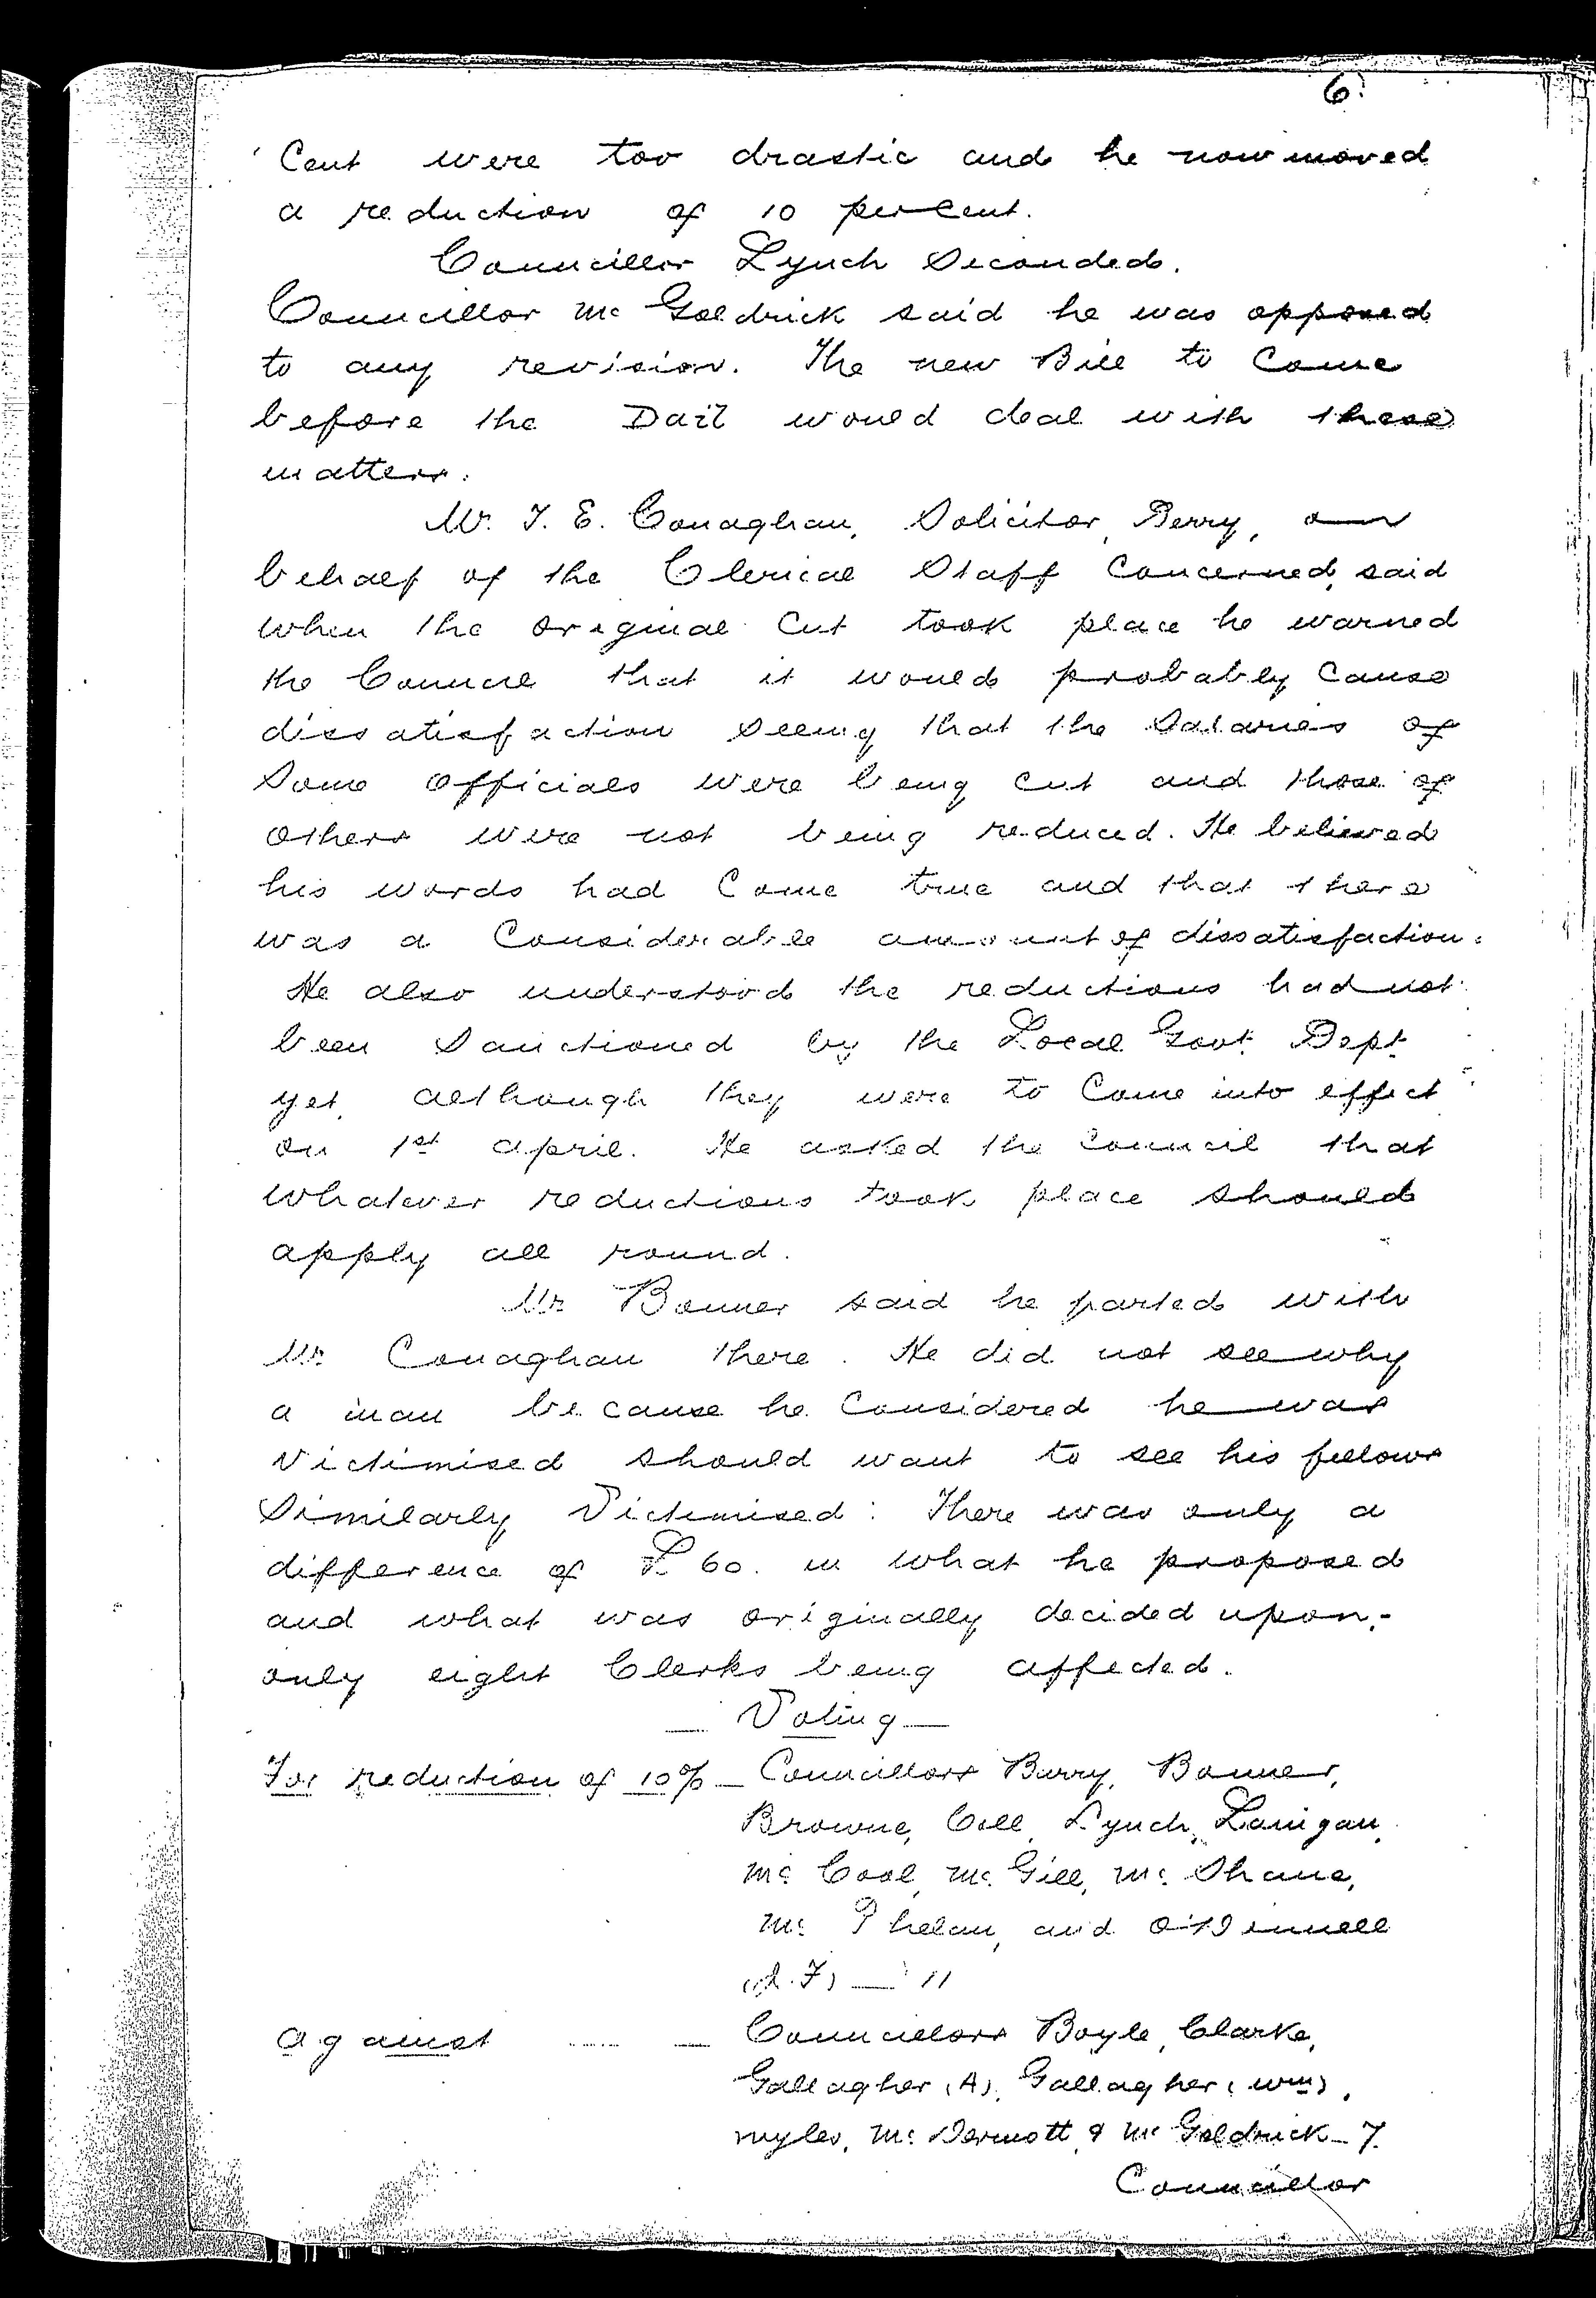 6.
Cent were too drastic and he now moved
a reduction of 10 per cent.
Councillor Lynch Seconded.
Councillor Mc Goldrick said he was opposed
to any revision. The new Bill to Come
before the Dail would deal with these
matters.
Mr. J. E. Conaghan, Solicitor, Derry, on
behalf of the Clerical Staff Concerned, said
when the original Cut took place he warned
the Council that it would probably Cause
dissatisfaction Seeing that the Salaries of
Some Officials were being Cut and those of
others were not being reduced. He believed
his words had Come true and that there
was a Considerable amount of dissatisfaction.
He also understood the reductions had not
been Sanctioned by the Local Govt. Dept.
yet, although they were to Come into effect
on 1st April. He asked the Council that
whatever reductions took place should
apply all round.
Mr Bonner said he parted with
Mr Conaghan there. He did not see why
a man because he Considered he was
Victimised should want to see his fellows
Similarly Victimised: There was only a
difference of £60. in what he proposed
and what was originally decided upon.-
only eight Clerks being affected.
— Voting —
For reduction of 10% — Councillors Barry, Bonner,
Browne, Coll, Lynch, Lanigan,
Mc Cool, Mc. Gill, Mc. Shane,
Mc Phelan, and O'Donnell
(A.F) — 11
Against — Councillors Boyle, Clarke,
Gallagher (A), Gallagher (Wm),
Myles, Mc Dermott, & Mc Goldrick — 7.
Councillor